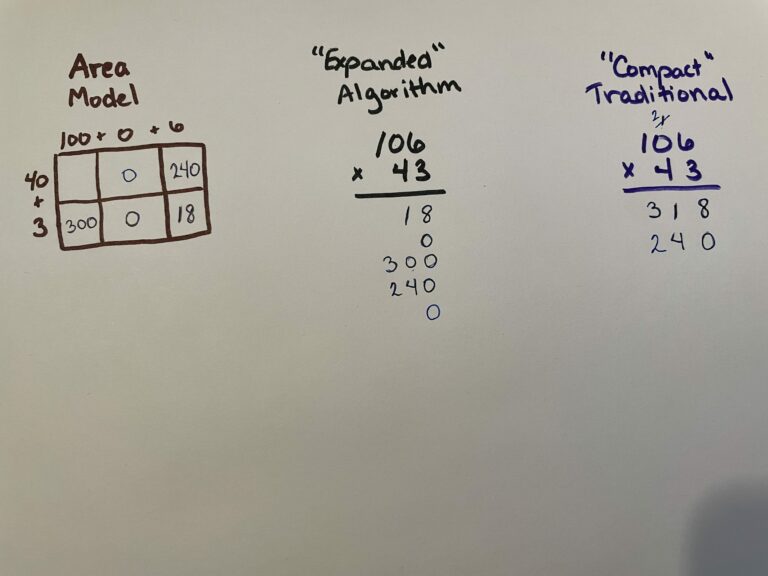 Area
Model
100 + 0 + 6
40 0 240
+
3 300 0 18
"Expanded"
Algorithm
106
x 43
18
0
300
240
0
"Compact"
Traditional
106
x 43
318
240